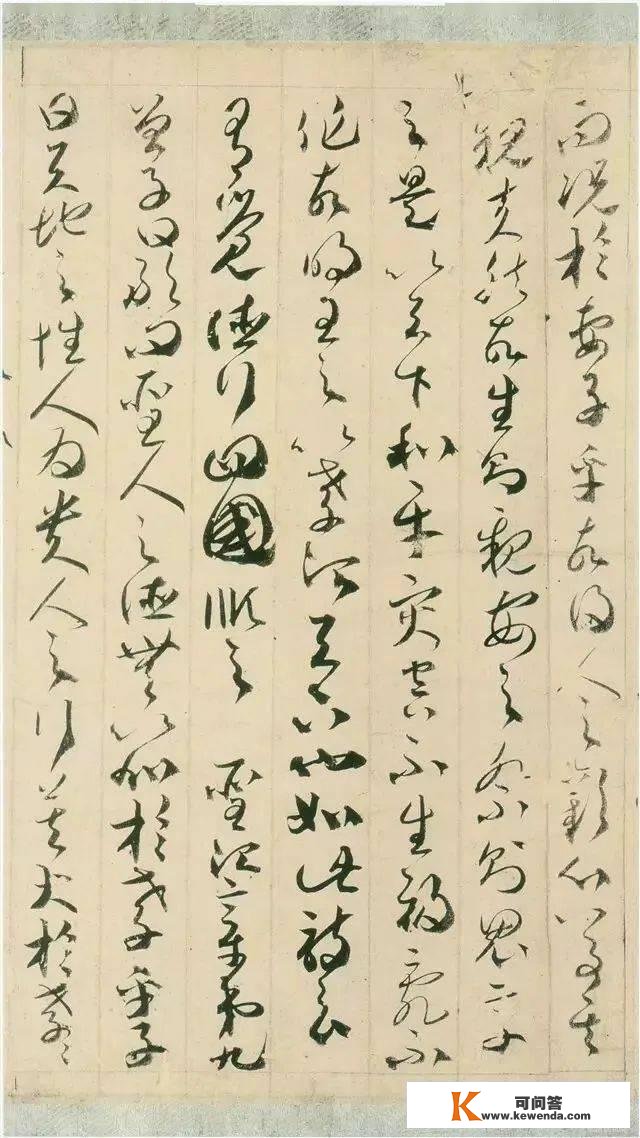 而況於妻子乎故得人之歡心以事其
親夫然故生則親安之祭則鬼享
之是以天下和平災害不生禍亂不
作故明王之以孝治天下也如此詩云
有覺德行四國順之 聖治章第九
曾子曰敢問聖人之德無以加於孝乎子
曰天地之性人為貴人之行莫大於孝〻
K 可问答
www.kewenda.com